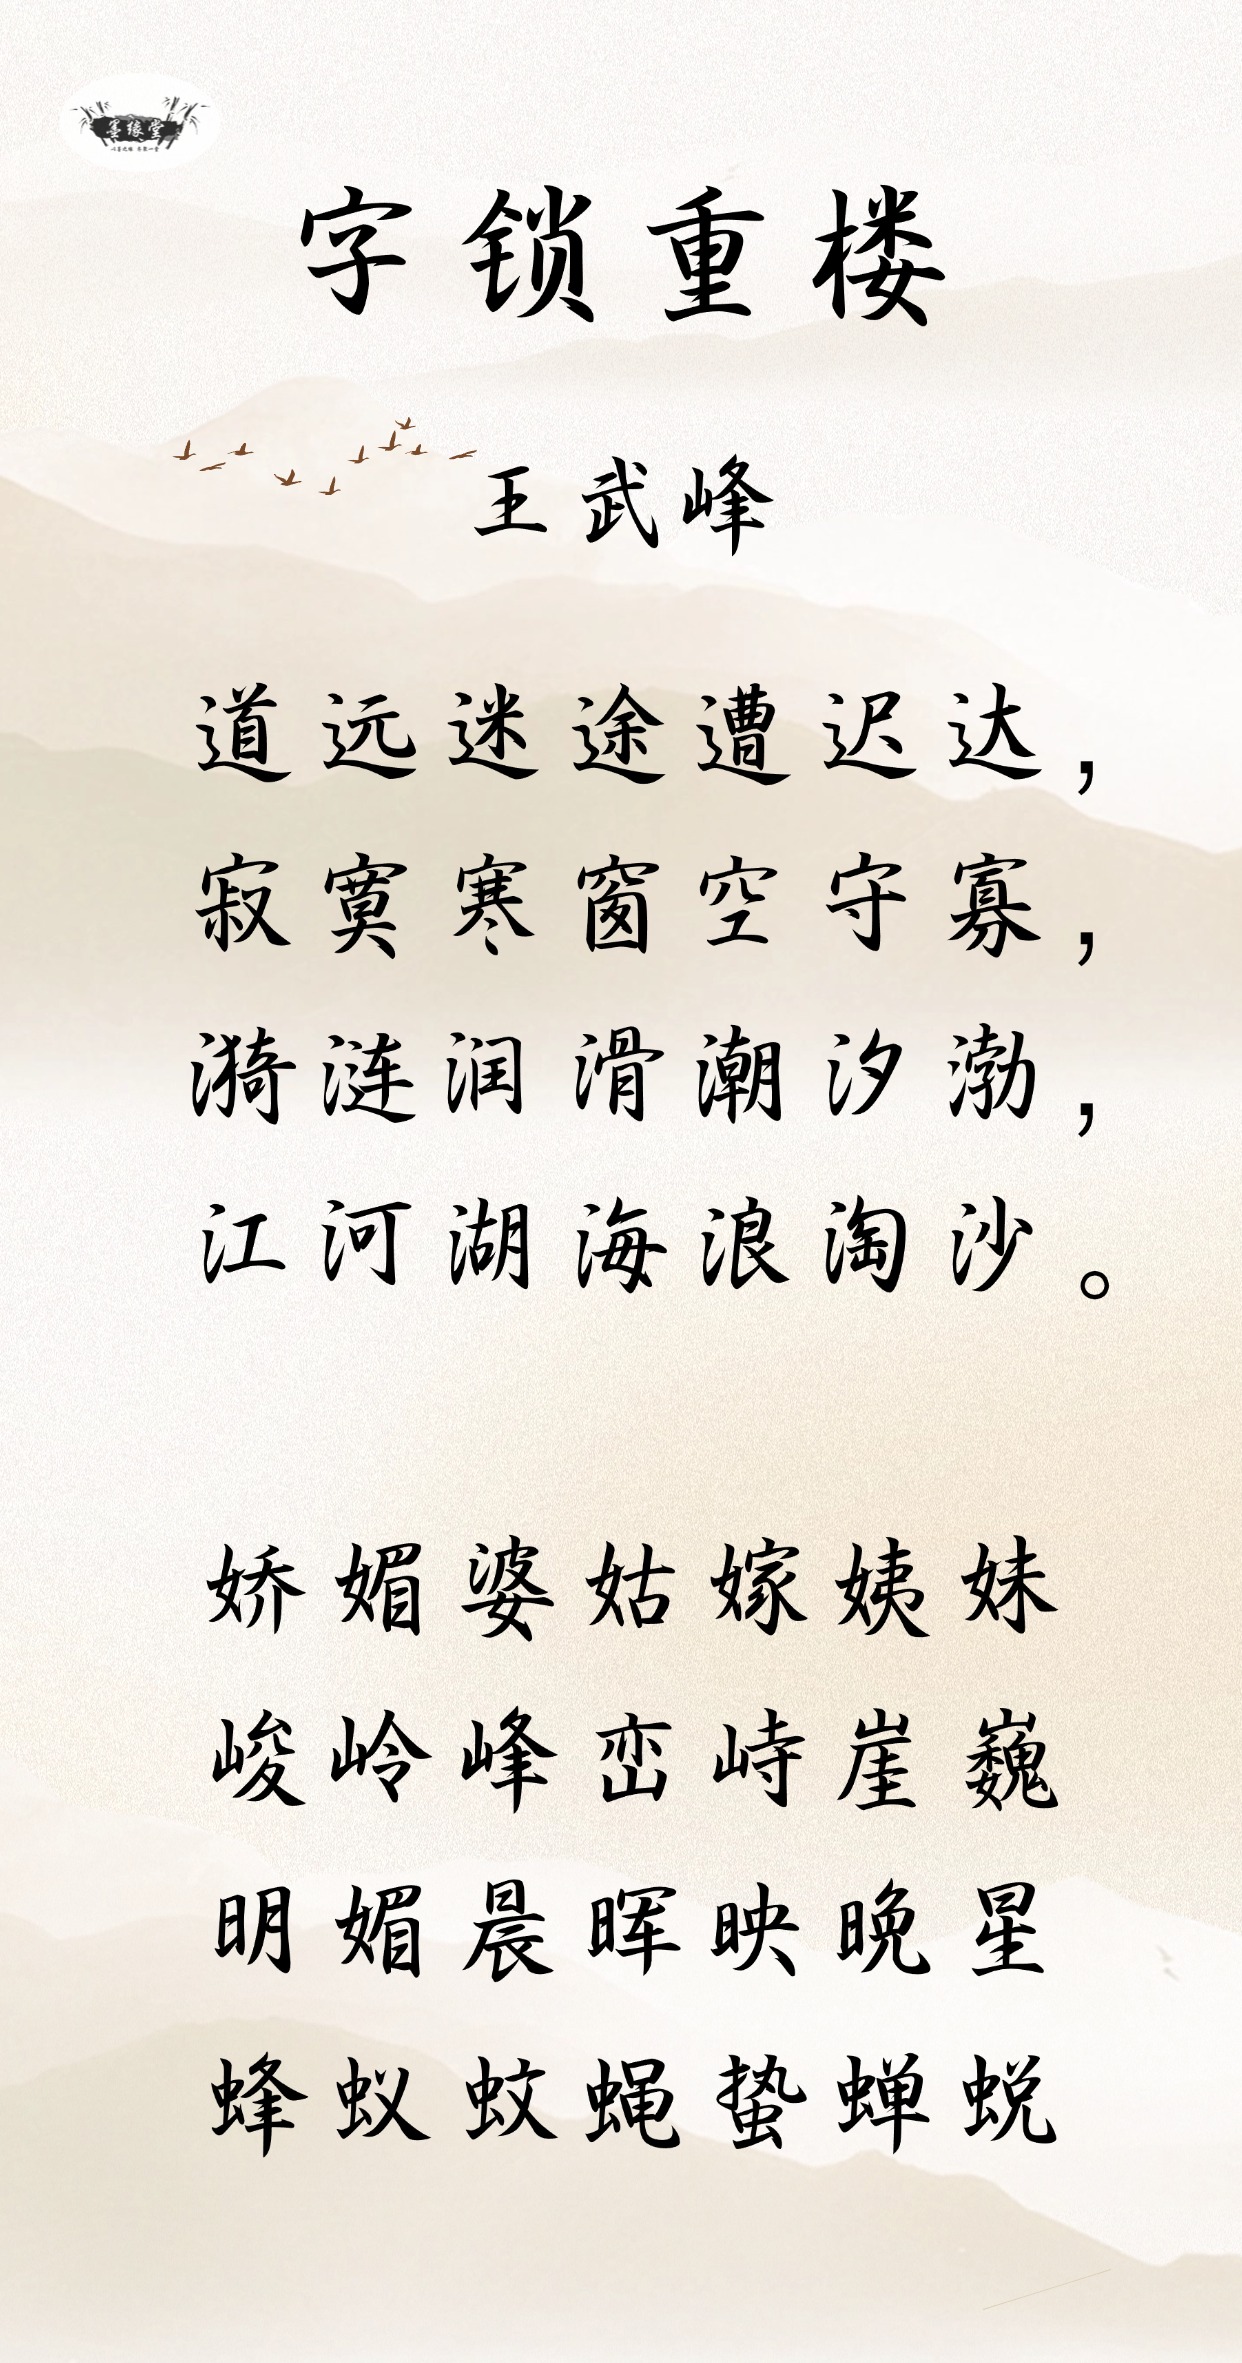 墨缘堂
字锁重楼
王武峰
道远迷途遭迟达，
寂寞寒窗空守寡，
漪涟润滑潮汐渤，
江河湖海浪淘沙。
娇媚婆姑嫁姨妹
峻岭峰峦峙崖巍
明媚晨晖映晚星
蜂蚁蚊蝇蛰蝉蜕